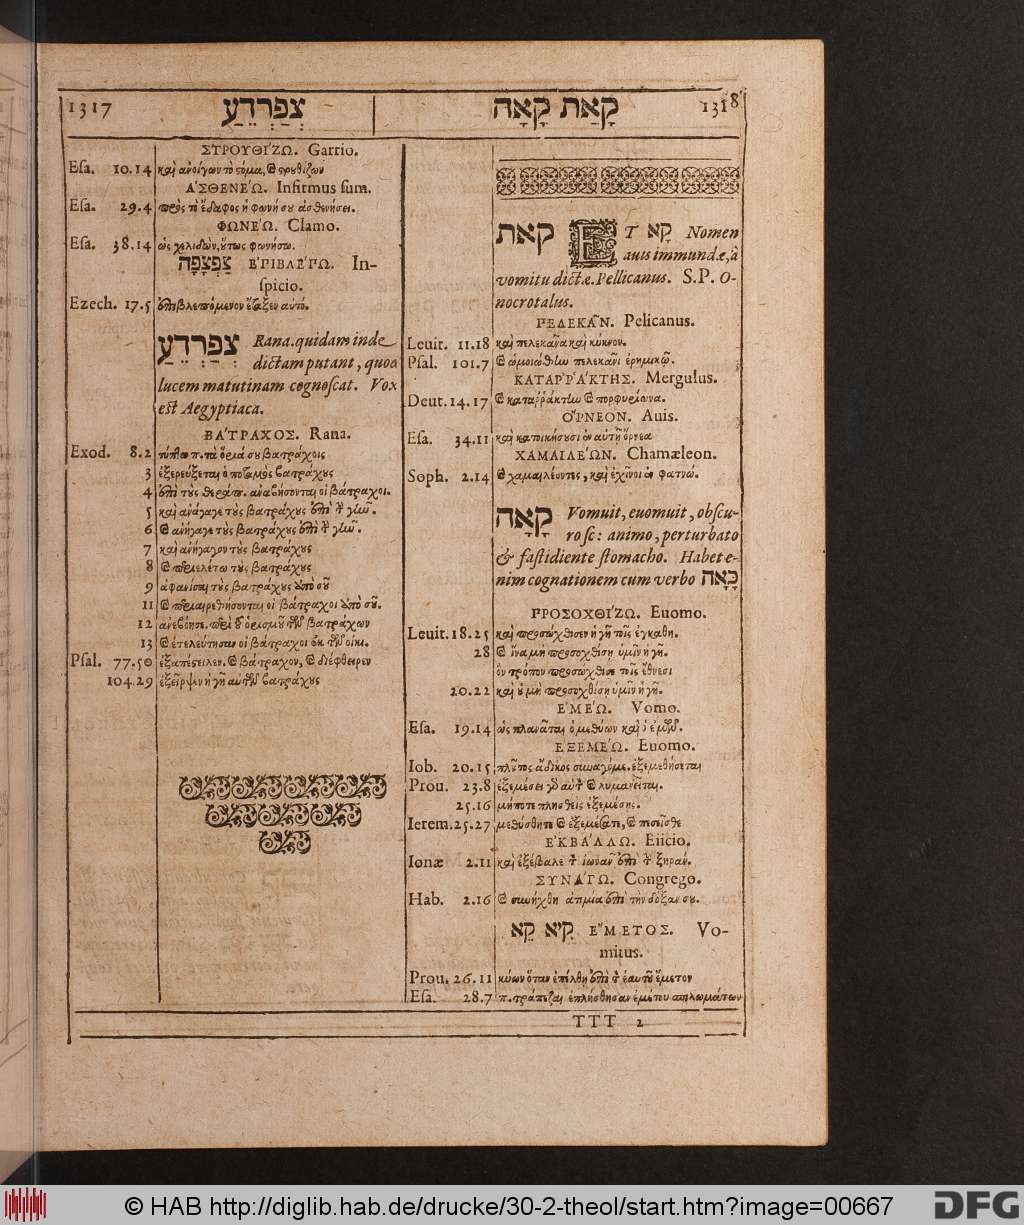 1317 צְפַרְדֵּעַ
ΣΤΡΟΥΘΊΖΩ. Garrio.
Esa. 10.14 καὶ ἀνοίγων τὸ στόμα, καὶ στρουθίζων
ἈΣΘΕΝΈΩ. Infirmus sum.
Esa. 29.4 πρὸς τὸ ἔδαφος ἡ φωνή σου ἀσθενήσει.
ΦΩΝΈΩ. Clamo.
Esa. 38.14 ὡς χελιδὼν, οὕτως φωνήσω.
צַפְצָפָה ἘΠΙΒΛΈΠΩ. In-
spicio.
Ezech. 17.5 ἐπιβλεπόμενον ἔταξεν αὐτό.
צְפַרְדֵּעַ Rana. quidam inde
dictam putant, quod
lucem matutinam cognoscat. Vox
est Aegyptiaca.
ΒΆΤΡΑΧΟΣ. Rana.
Exod. 8.2 τύπτω π. τὰ ὅριά σου βατράχοις
3 ἐξερεύξεται ὁ ποταμὸς βατράχους
4 ἐπὶ τοὺς θεράπ. ἀναβήσονται οἱ βάτραχοι.
5 καὶ ἀνάγαγε τοὺς βατράχους ἐπὶ τ γῆν.
6 καὶ ἀνήγαγε τοὺς βατράχους ἐπὶ τ γῆν.
7 καὶ ἀνήγαγον τοὺς βατράχους
8 καὶ περιελέτω τοὺς βατράχους
9 ἀφανίσαι τοὺς βατράχους ἀπὸ σοῦ
11 καὶ περιαιρεθήσονται οἱ βάτραχοι ἀπὸ σοῦ.
12 ἀνεβόησε. περὶ τοῦ ὁρισμοῦ τῶν βατράχων
13 καὶ ἐτελεύτησαν οἱ βάτραχοι ἐκ τῶν οἰκι.
Psal. 77.50 ἐξαπέστειλεν. καὶ βάτραχον, καὶ διέφθειρεν
104.29 ἐξεῖρψεν ἡ γῆ αὐτῶν βατράχους
קָאַת קָאָה 1318
קאת ET קָא Nomen
auis immundæ, à
vomitu dictæ. Pellicanus. S.P. O-
nocrotalus.
ΠΕΛΕΚΑΝ. Pelicanus.
Leuit. 11.18 καὶ πελεκᾶνα καὶ κύκνον.
Psal. 101.7 καὶ ὡμοιώθην πελεκᾶνι ἐρημικῷ.
ΚΑΤΑΡΡΆΚΤΗΣ. Mergulus.
Deut. 14.17 καὶ καταρράκτην καὶ πορφυρίωνα.
ὌΡΝΕΟΝ. Auis.
Esa. 34.11 καὶ κατοικήσουσι ἐν αὐτῇ ὄρνεα
ΧΑΜΑΙΛΕΏΝ. Chamæleon.
Soph. 2.14 καὶ χαμαιλέοντες, καὶ ἐχῖνοι ἐν φατνώ.
קָאָה Vomuit, euomuit, obscu-
ro sc: animo, perturbato
& fastidiente stomacho. Habet e-
nim cognationem cum verbo כָּאָה
ΠΡΟΣΟΧΘΊΖΩ. Euomo.
Leuit. 18.25 καὶ προσώχθισεν ἡ γῆ τοῖς ἐγκαθη.
28 καὶ ἵνα μὴ προσοχθίσῃ ὑμῖν ἡ γῆ.
ὃν τρόπον προσώχθισε τοῖς ἔθνεσι
20.22 καὶ οὐ μὴ προσοχθίσῃ ὑμῖν ἡ γῆ.
ἘΜΈΩ. Vomo.
Esa. 19.14 ὡς πλανᾶται ὁ μεθύων καὶ ὁ ἐμῶν.
ἘΞΕΜΈΩ. Euomo.
Iob. 20.15 πλοῦτος ἄδικος συναγόμε. ἐξεμεθήσεται
Prou. 23.8 ἐξεμέσει γὸ αὐτ καὶ λυμανεῖται.
25.16 μήποτε πλησθεὶς ἐξεμέσῃς.
Ierem. 25.27 μεθύσθητε καὶ ἐξεμέσατε, καὶ πεσεῖσθε
ἘΚΒΆΛΛΩ. Eiicio.
Ionæ 2.11 καὶ ἐξέβαλε τ ἰωνᾶν ἐπὶ τ ξηράν.
ΣΥΝΆΓΩ. Congrego.
Hab. 2.16 καὶ συνήχθη ἀτιμία ἐπὶ τὴν δόξαν σου.
קִיא קֵא ἜΜΕΤΟΣ. Vo-
mitus.
Prou. 26.11 κύων ὅταν ἐπέλθῃ ἐπὶ τ ἑαυτοῦ ἔμετον
Esa. 28.7 π. τράπεζαι ἐπλήσθησαν ἐμέτου
TTT 2
© HAB http://diglib.hab.de/drucke/30-2-theol/start.htm?image=00667
DFG